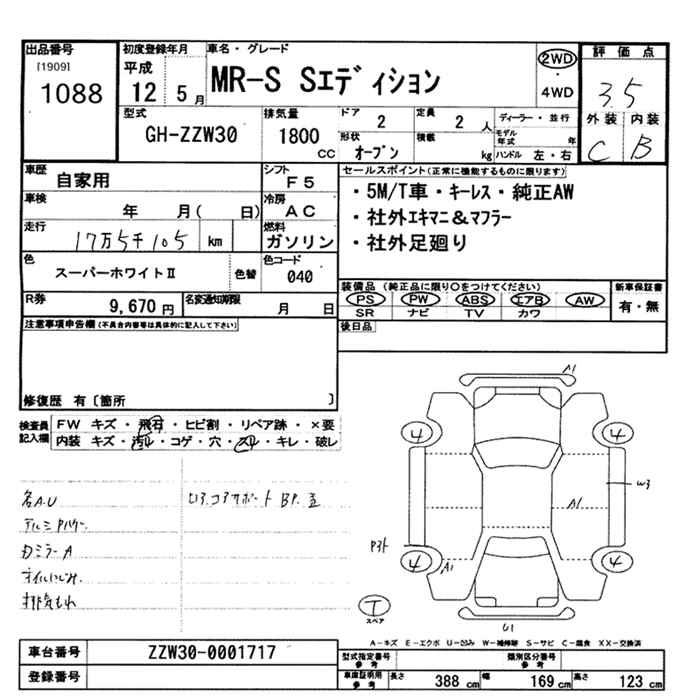 出品番号
[1909]
1088
初度登録年月
平成
12 5月
車名・グレード
MR-S Sエディション
2WD
4WD
評価点
3.5
外装 内装
C B
型式
GH-ZZW30
排気量
1800
cc
ドア
2
定員
2 人
形状
オープン
積載
kg
ディーラー・並行
モデル年式 年
ハンドル 左・右
車歴
自家用
シフト
F5
車検
年 月( 日)
冷房
AC
走行
17万5千105 km
燃料
ガソリン
色
スーパーホワイトⅡ
色替
色コード
040
R券
9,670円
名変通知期限
月 日
セールスポイント(正常に機能するものに限ります)
・5M/T車・キーレス・純正AW
・社外エキマニ&マフラー
・社外足廻り
装備品(純正品に限り○をつけてください)
PS PW ABS エアB AW
SR ナビ TV カワ
新車保証書
有・無
後日品
注意事項申告欄(不具合内容等は具体的に記入して下さい)
修復歴 有〔箇所 〕
検査員記入欄
FW キズ・飛石・ヒビ割・リペア跡・×要
内装 キズ・汚れ・コゲ・穴・スレ・キレ・破レ
各A.U
アルミ
カラミラーA
オイルにじみ
排気もれ
コアサポート
A1
4
4
W3
A1
4
4
A1
T
スペア
U1
A-キズ E-エクボ U-凹み W-補修跡 S-サビ C-腐食 XX-交換済
車台番号
ZZW30-0001717
登録番号
型式指定番号
参考
類別区分番号
参考
車庫証明用
参考
長さ 388 cm 幅 169 cm 高さ 123 cm